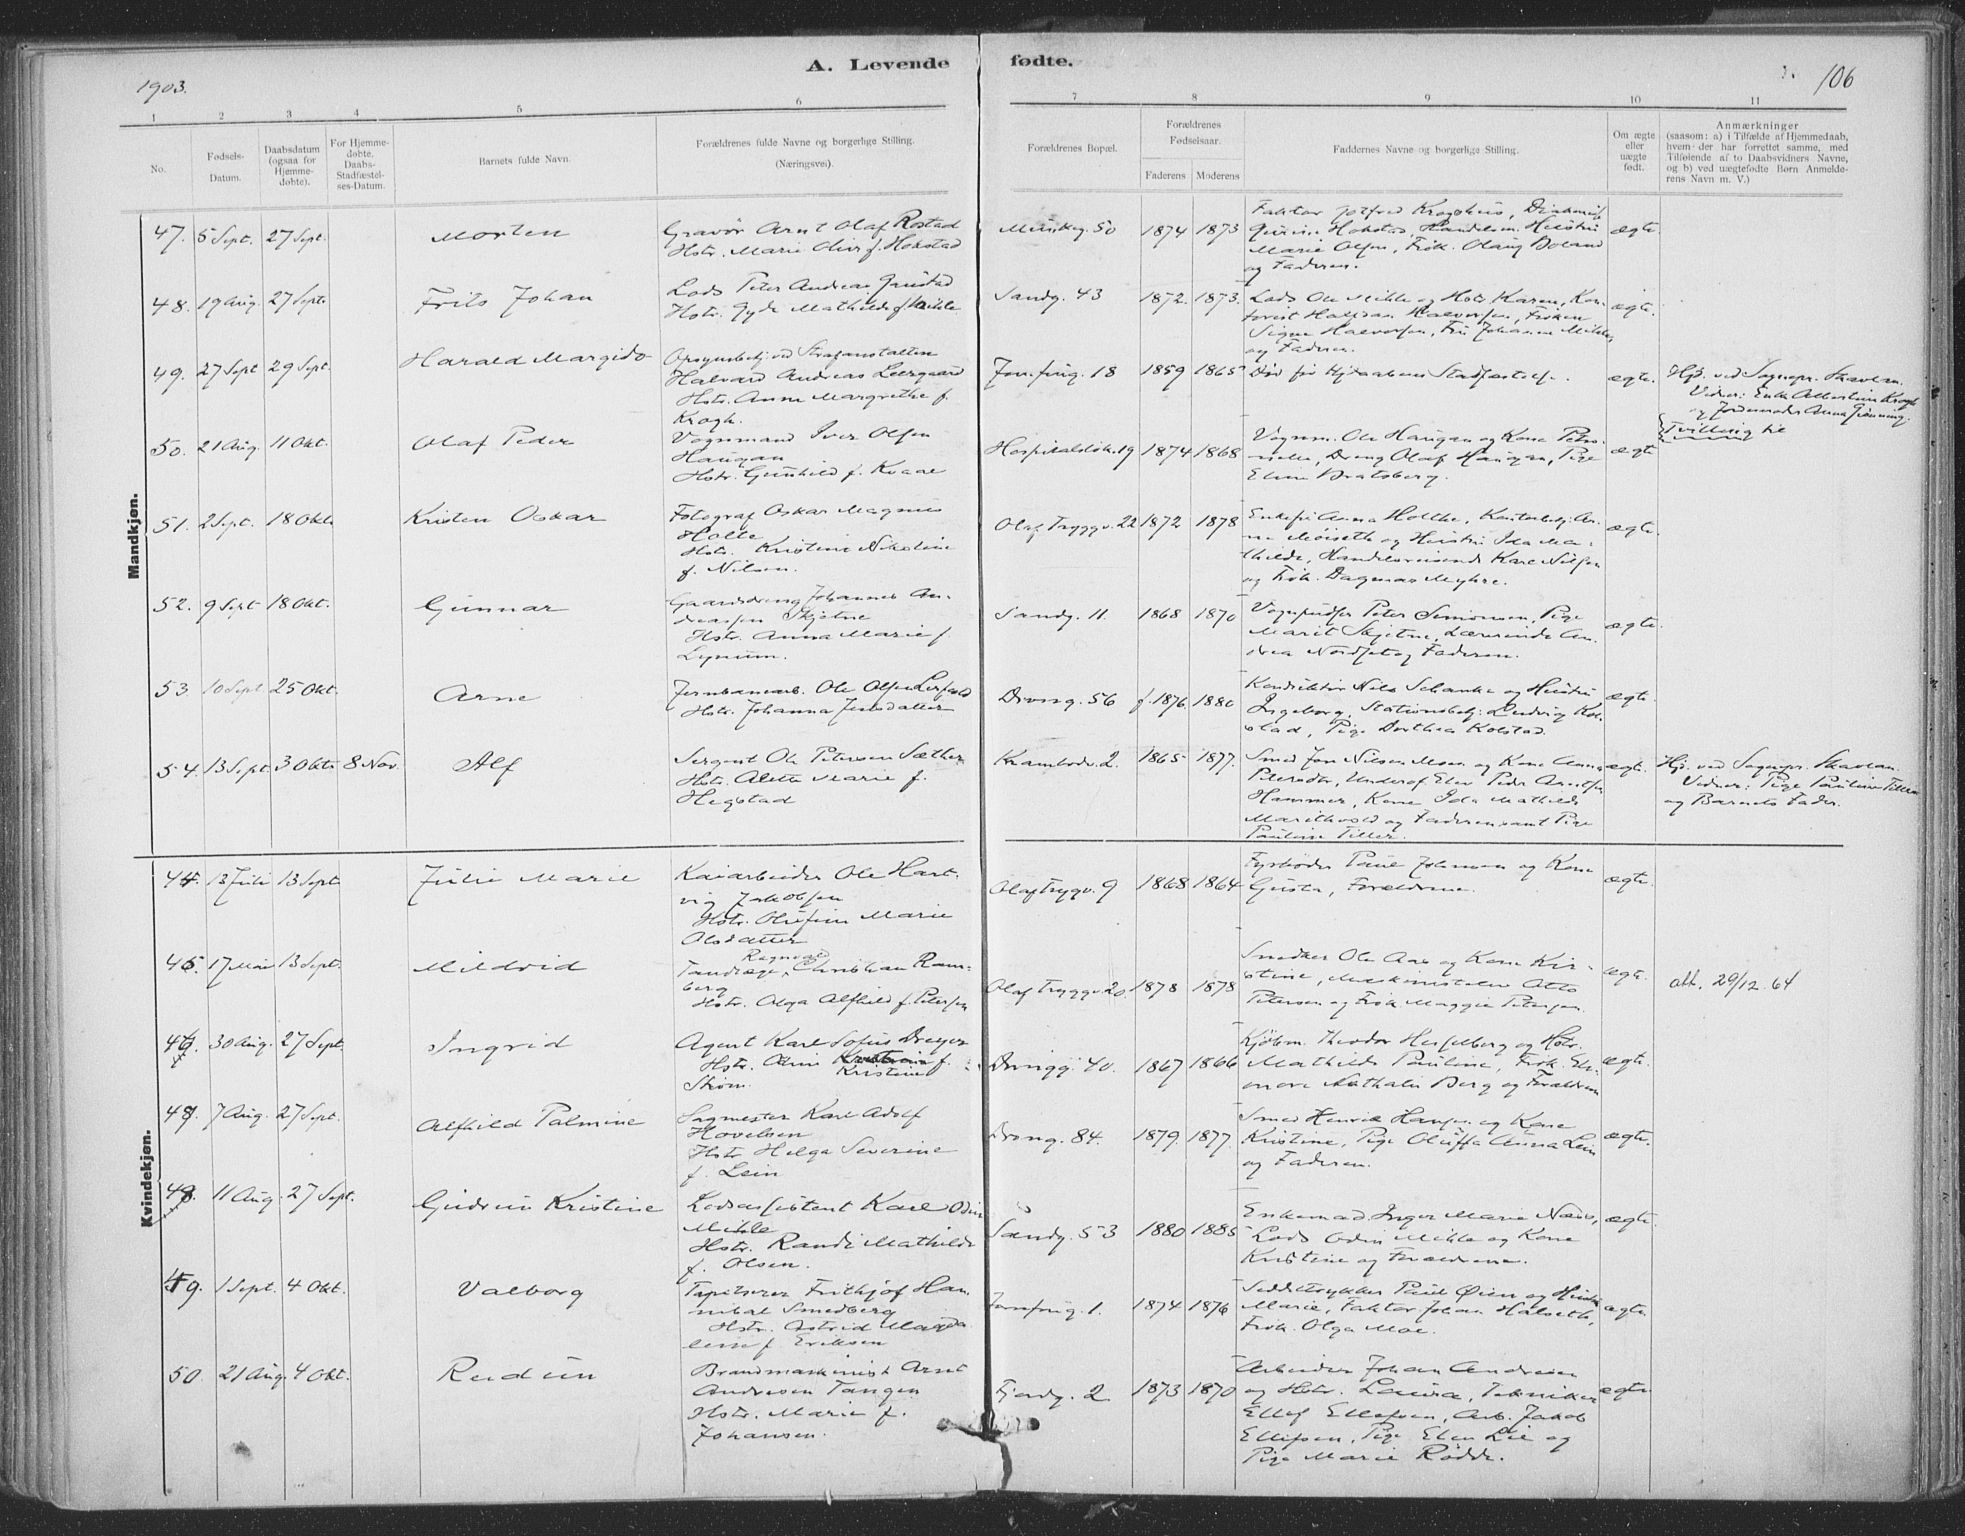 1903.
A. Levende fødte.
106
1 2 3 4 5 6 7 8 9 10 11
No.
Fødsels-Datum.
Daabsdatum (ogsaa for Hjemme-døbte).
For Hjemme-døbte, Daabs-Stadfæstel-ses-Datum.
Barnets fulde Navn.
Forældrenes fulde Navne og borgerlige Stilling.
(Næringsvei).
Forældrenes Bopæl.
Forældrenes Fødselsaar.
Faderens Moderens
Faddernes Navne og borgerlige Stilling.
Om ægte eller uægte født.
Anmærkninger
(saasom: a) i Tilfælde af Hjemmedaab,
hvem der har forrettet samme, med
Tilføiende af to Daabsvidners Navne,
og b) ved uægtefødte Børn Anmelde-
rens Navn m. V.)
Mandkjøn.
47. 5 Sept. 27 Sept. Morten
Gravør Arnt Olaf Rostad
Hstr. Marie Oliv f. Hokstad
50 1874 1873
Marie Olsen, Frøk. Olaug
og Faderen.
ægte
48. 19 Aug. 27 Sept. Frits Johan
Lods Peter Andreas
Hstr. Gyda Mathilde f. Mikle
Sandg. 43 1872. 1873.
Lods Ole Mikle og Hstr. Karen, Kon-
torist Halfdan Halvorsen, Frøken
Signe Halvorsen, Fru Johanna Mikle,
og Faderen.
ægte.
49. 27 Sept 29 Sept. Harald Margido
Opsynsbetj. ved Strafanstalten
Halvard Andreas Leergaard
Hstr. Anna Margrethe f.
Krogh.
Jomfrug. 18 1859 1865
Død før Hjdaabens Stadfæstelse.
ægte.
Hjd. ved Sognepr. Skavlan.
Vidner: Enke Albertine Krogh
og Jordemoder Anna Grønning.
Tvilling til
50. 21 Aug. 11 Okt. Olaf Peder
Vognmand Iver Olsen
Haugan
Hstr. Gunhild f. Kvaal
Hospitalsløk. 19 1874 1868
Vognm. Ole Haugan og Kone Petro-
nelle, Dreng Olaf Haugan, Pige
Eline Bratsberg.
ægte
51. 2 Sept. 18 Okt. Kristen Oskar
Fotograf Oskar Magnus
Holte
Hstr. Kristine Nikoline
f. Nilsen.
Olaf Tryggv. 22 1872 1878
Enkefru Anna Holthe, Kontorbetj. Ar-
ne Moiseth og Hustru Ida Ma-
thilde, Handelsreisende Kare Nilsen
og Frøk. Dagmar Myhre.
ægte.
52. 9 Sept 18 Okt. Gunnar
Gaardsdreng Johannes An-
dreassen Skjetne
Hstr. Anna Marie f.
Lynum.
Sandg. 11. 1868 1870
Peter Simonsen, Pige
Marit Skjetne, Lærerinde An-
drea Nordset og Faderen.
ægte.
53. 10 Sept 25 Okt. Arne
Jernbanearb. Ole Olsen Lerfald
Hstr. Johanna Jensdatter
Drong. 56 f. 1876 1880
Konduktør Nils Schanke og Hustru
Ingeborg, Stationsbetj. Ludvig Kol-
stad, Pige Dorthea Kolstad.
ægte.
54. 13 Sept. 3 Okt. 8 Nov. Alf
Sergent Ole Petersen Sæther
Hstr. Alette Marie f.
Hegstad
Krambodv. 2. 1865 1877.
Smed Jon Nilsen Moen og Kone Anna
Petersdtr, Underof. Elev Peder Arntsen
Hammer, Kone Ida Mathilde
og Faderen samt Pige
Pauline Tiller.
ægte.
Hjd. ved Sognepr. Skavlan.
Vidner: Pige Pauline Tiller
og Barnets Fader.
Kvindekjøn.
44. 13 Juli 13 Sept. Julie Marie
Kaiarbeider Ole Hart-
vig Jakobsen
Hstr. Olufine Marie
Olsdatter
Olaf Trygv. 9 1868 1864
Fyrbøder Paul Johansen og Kone
Gusta, Forældrene.
ægte.
45. 17 Mai 13 Sept. Mildrid
Ragnvald
Tandlæge, Christian Ram-
berg
Hstr. Olga Alfhild f. Petersen
Olaf Tryggv. 20. 1878 1878
Snedker Ole Aas og Kone Kir-
stine, Maskinist Otto
Petersen og Frøk. Maggie Petersen
ægte.
att. 29/12. 64
46. 30 Aug. 27 Sept. Ingrid
Agent Karl Sofus Dreyer
Hstr. Olini f.
Kristine
Strøm.
Dronngg. 40. 1867 1866
Kjøbm. Theodor Hesselberg og Hstr.
Mathilde Pauline, Frøk. Ele-
onore Nathalie Berg og Forældrene
ægte.
47. 7 Aug. 27 Sept. Alfhild Palmine
Sagmester Karl Adolf
Hovelsen
Hstr. Helga Severine
f. Lein
Drong. 84. 1879 1877.
Smed Henrik Hansen og Kone
Kristine, Pige Oluffa Anna Lein
og Faderen.
ægte.
48. 11 Aug. 27 Sept. Gudrun Kristine
Lodsassistent Karl Odin
Mikle
Hstr. Randi Mathilde
f. Olsen.
Sandg. 53 1880 1885
Enkemad. Inger Marie Næss,
Lods Odin Mikle og Kone
Kristine og Forældrene.
ægte.
49. 1 Sept. 4 Okt. Valborg
Tapetserer Frithjof Han-
nibal Smedberg
Hstr. Astrid Magda-
lene f. Eriksen
Jomfrug. 1. 1874 1876
Paul Øien og Hustru
Marie, Faktor Johan Halseth,
Frøk. Olga Moe.
ægte
50. 21 Aug. 4 Okt. Reidun
Brandmaskinist Arnt
Andresen Tangen
Hstr. Marie f.
Johansen.
Fjordg. 2 1873 1870
Arbeider Johan Andresen
og Hstr. Laura, Tekniker
Ellef Ellefsen, Arb. Jakob
Ellefsen, Pige Elen Lie og
Pige Marie Rødde.
ægte